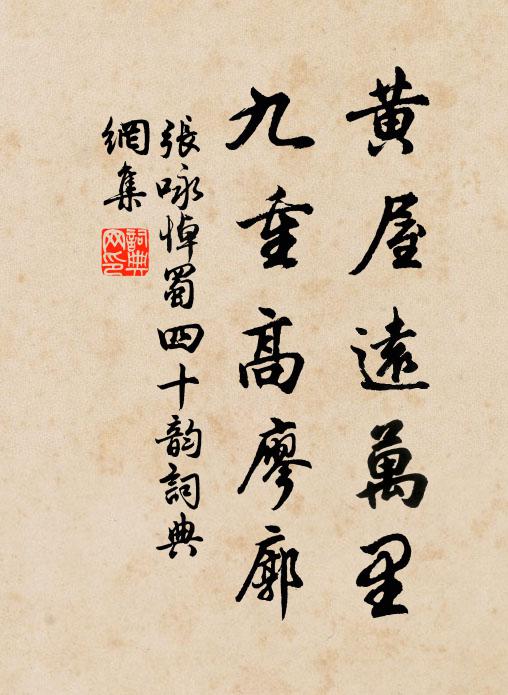 黃屋遠萬里
九重高廖廓
張咏悼蜀四十韵詞典
網集
詞典
網印